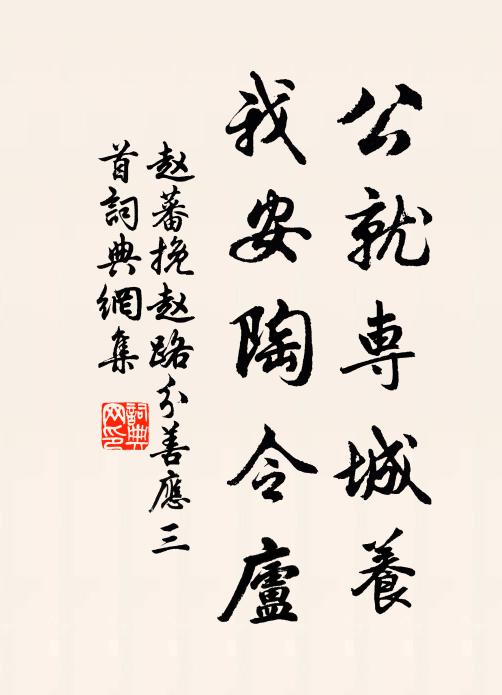 公就専城養
我安陶令廬
赵蕃挽赵路分善應三
首詞典網集
詞典网印